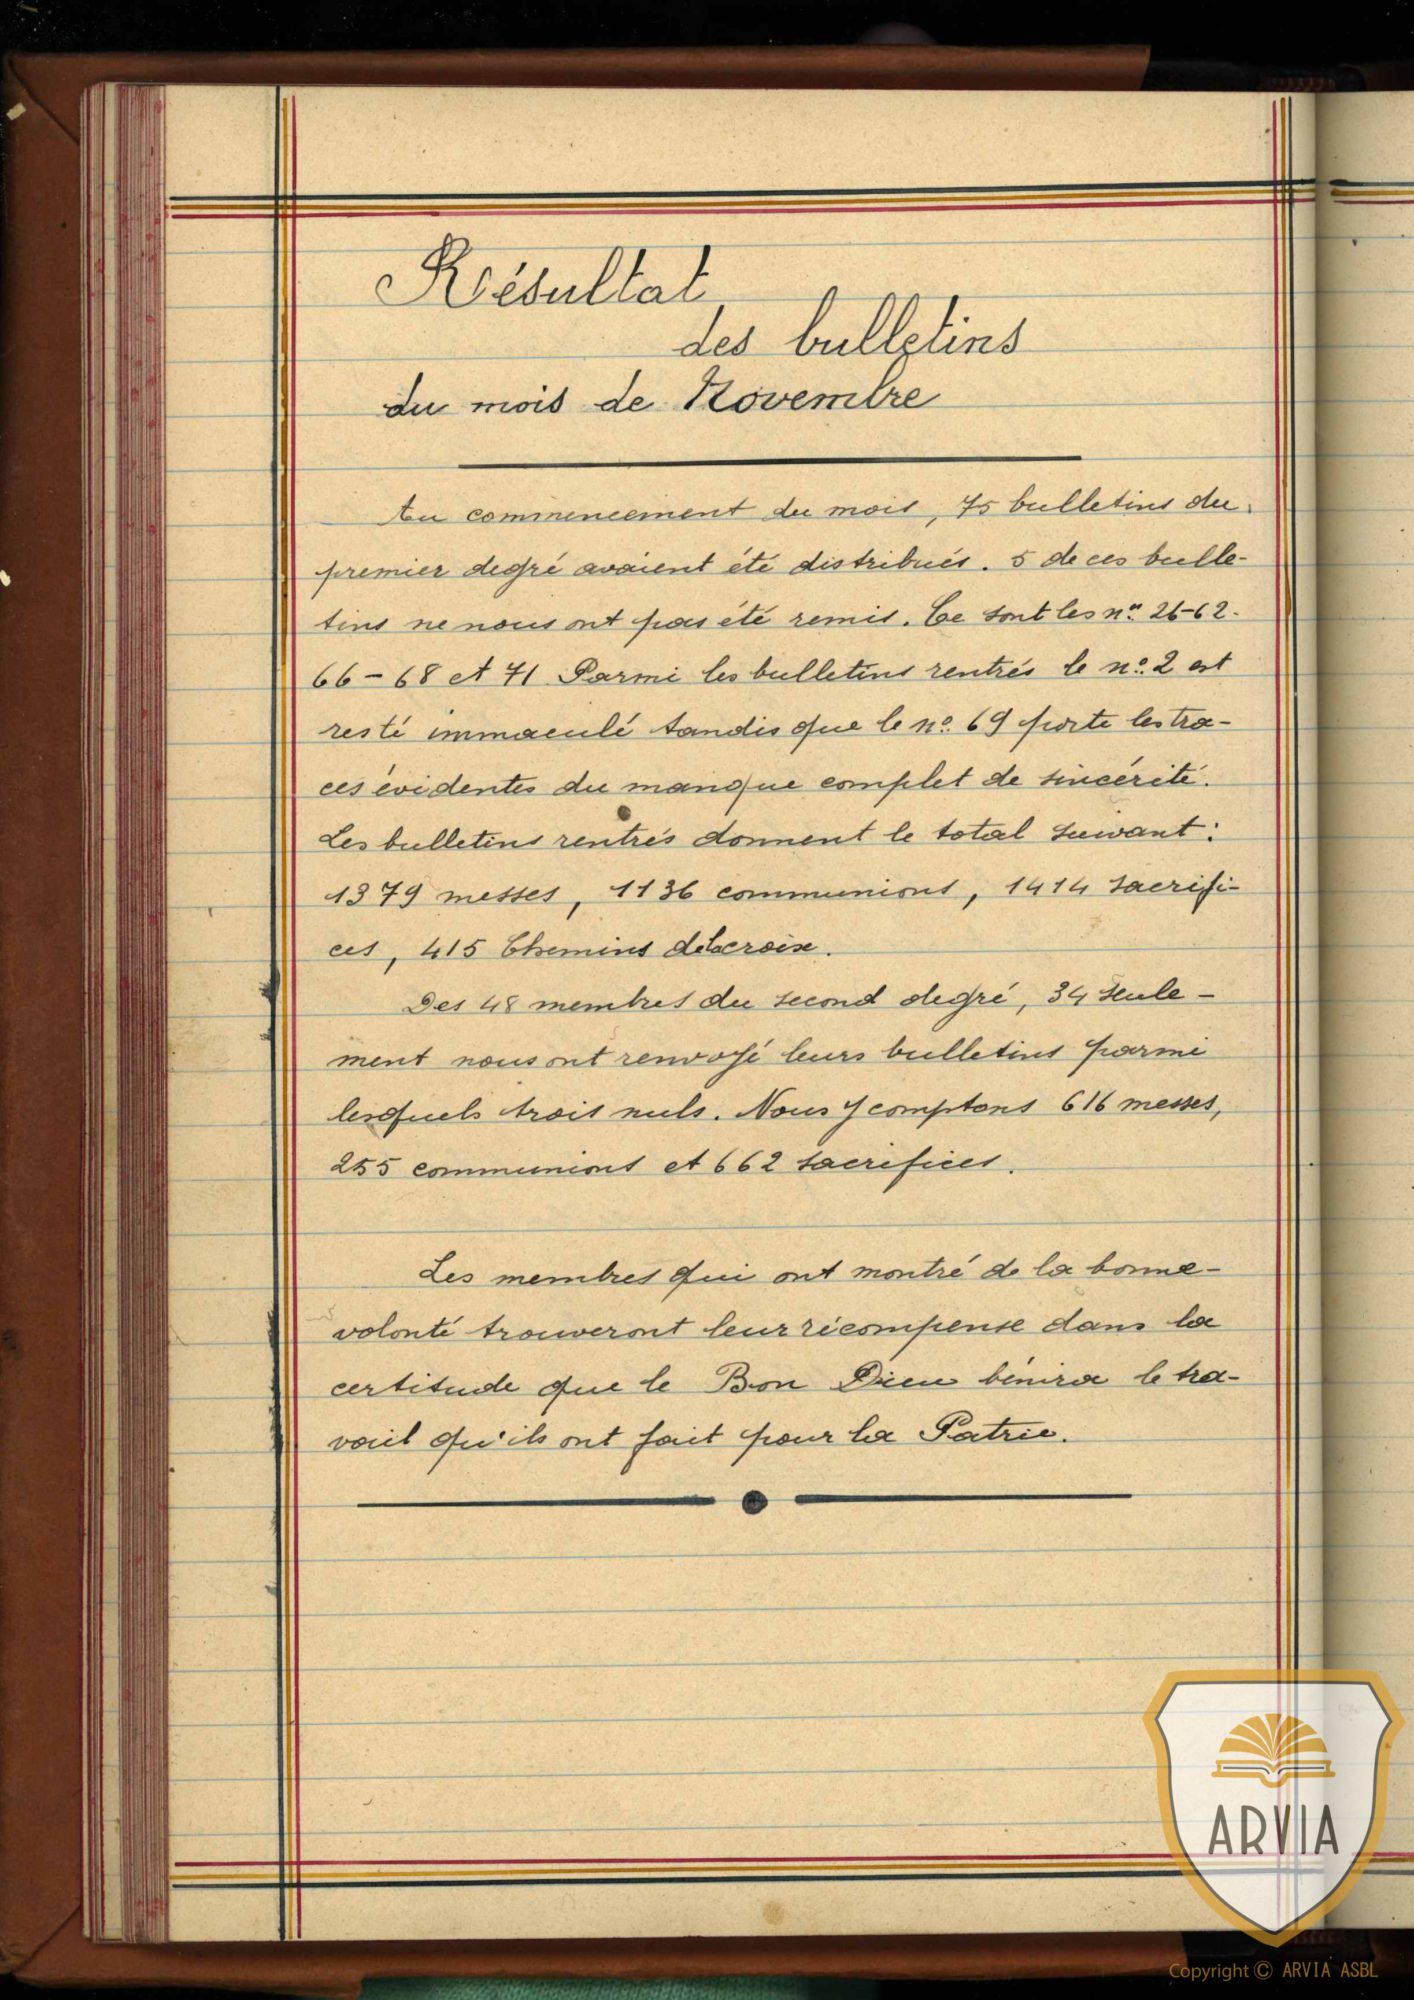 Résultat
des bulletins
du mois de Novembre
Au commencement du mois, 75 bulletins du
premier degré avaient été distribués. 5 de ces bulle-
tins ne nous ont pas été remis. Ce sont les nos. 26-62-
66-68 et 71. Parmi les bulletins rentrés le no. 2 est
resté immaculé tandis que le no. 69 porte les tra-
ces évidentes du manque complet de sincérité.
Les bulletins rentrés donnent le total suivant:
1379 messes, 1136 communions, 1414 sacrifi-
ces, 415 Chemins de la croix.
Des 48 membres du second degré, 34 seule-
ment nous ont renvoyé leurs bulletins parmi
lesquels trois nuls. Nous y comptons 616 messes,
255 communions et 662 sacrifices.
Les membres qui ont montré de la bonne-
volonté trouveront leur récompense dans la
certitude que le Bon Dieu bénira le tra-
vail qu'ils ont fait pour la Patrie.
ARVIA
Copyright © ARVIA ASBL